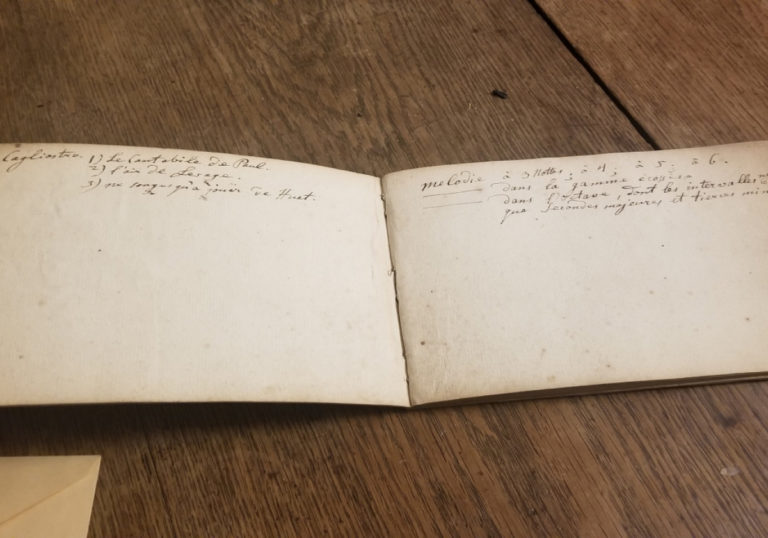 Cagliostro. 1) Le Cantabile de Paul.
2) l'air de Lesage.
3) ne songer qu'à jouir de Huet.
melodie à 3 Nottes, à 4, à 5, à 6.
dans la gamme
dans l'octave, dont les intervalles
que secondes majeures et tierces min